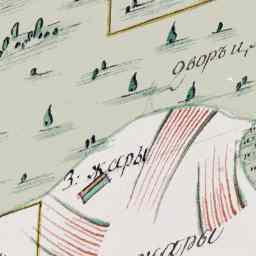 дворъ и,
З: жары
жары